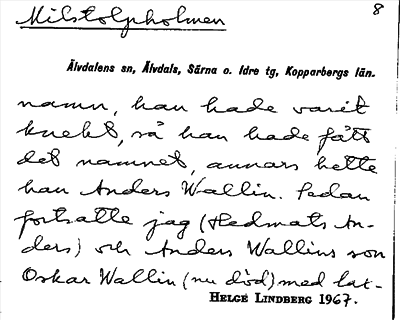 Milstolpholmen
8
Älvdalens sn, Älvdals, Särna o. Idre tg, Kopparbergs län.
namn, han hade varit
knekt, så han hade fått
det namnet, annars hette
han Anders Wallin. Sedan
fortsatte jag (Hedmats An-
ders) och Anders Wallins son
Oskar Wallin (nu död) med lax-
HELGE LINDBERG 1967.